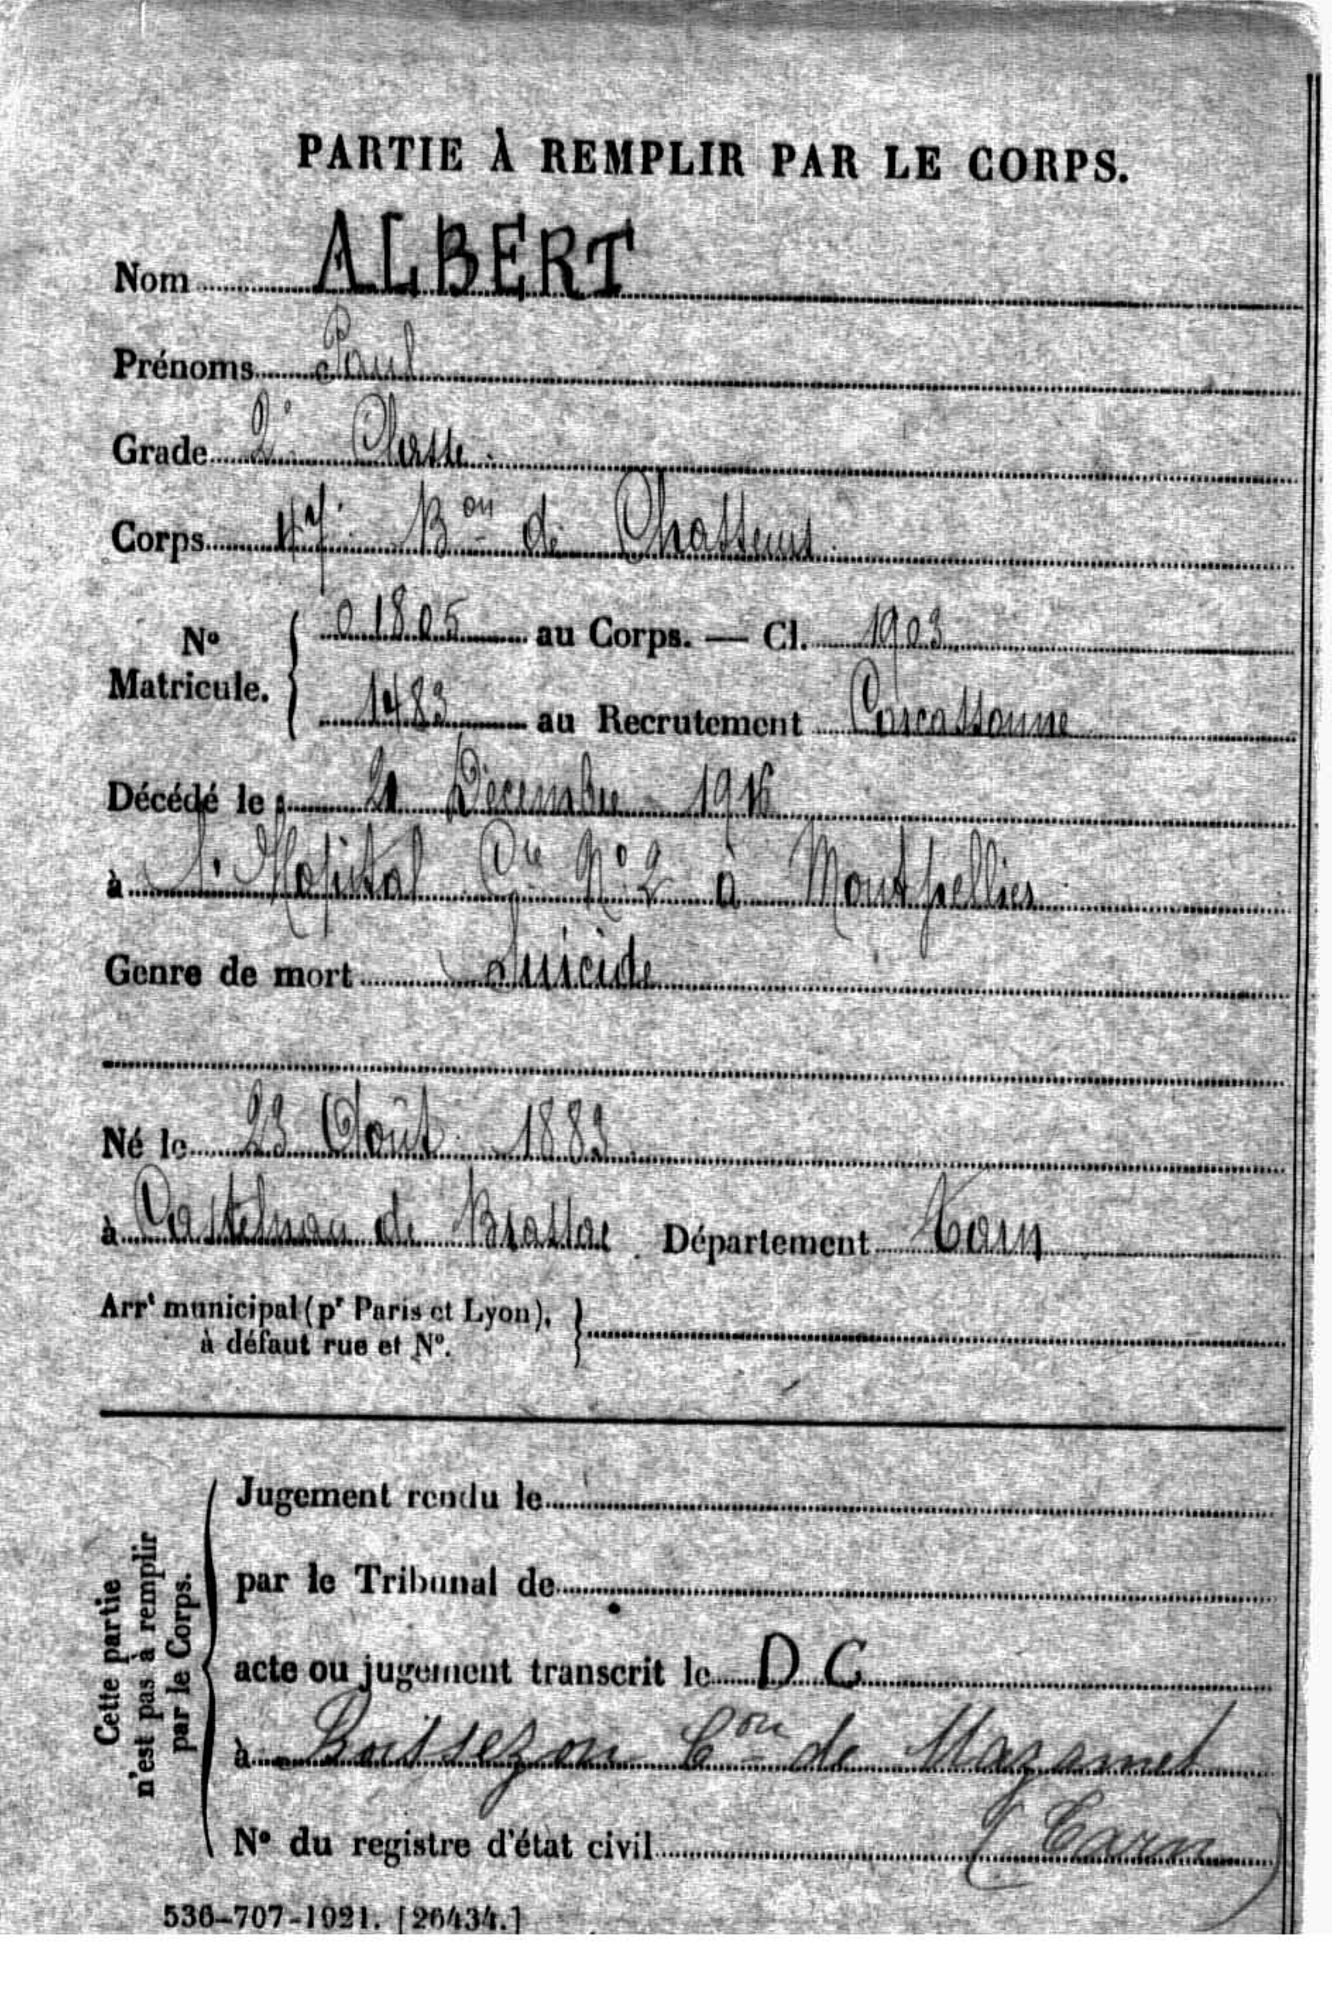 PARTIE À REMPLIR PAR LE CORPS.
Nom ALBERT
Prénoms Paul
Grade 2e Classe
Corps 47e Bon de Chasseurs
No Matricule. 01805 au Corps. — Cl. 1903
1483 au Recrutement Carcassonne
Décédé le 21 Décembre 1916
à l'Hôpital Cre No 2 à Montpellier
Genre de mort Suicide
Né le 23 Août 1883
à Castelnau de Brassac Département Tarn
Arrt municipal (pr Paris et Lyon),
à défaut rue et No.
Cette partie
n'est pas à remplir
par le Corps.
Jugement rendu le
par le Tribunal de
acte ou jugement transcrit le D C
à Boissezon Con de Mazamet
No du registre d'état civil (Tarn)
536-707-1921. [26434.]